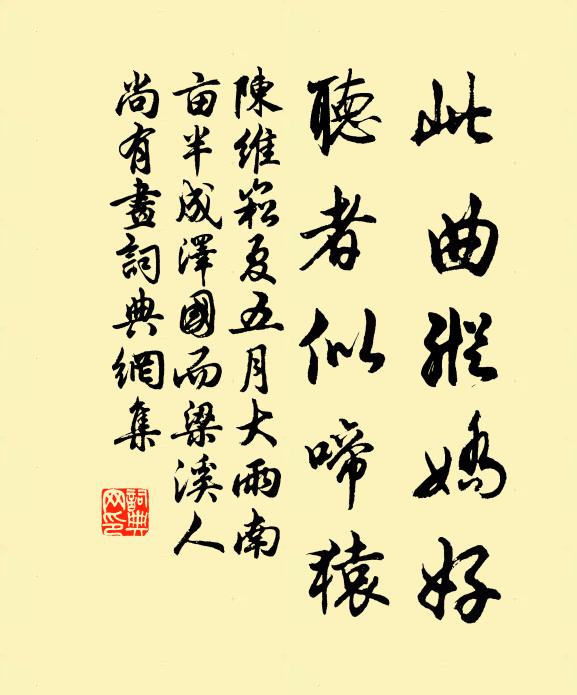 此曲縱嬌好
聽者似啼猿
陳維崧夏五月大雨南
亩半成澤國而梁溪人
尚有畫詞典網集
詞典網印